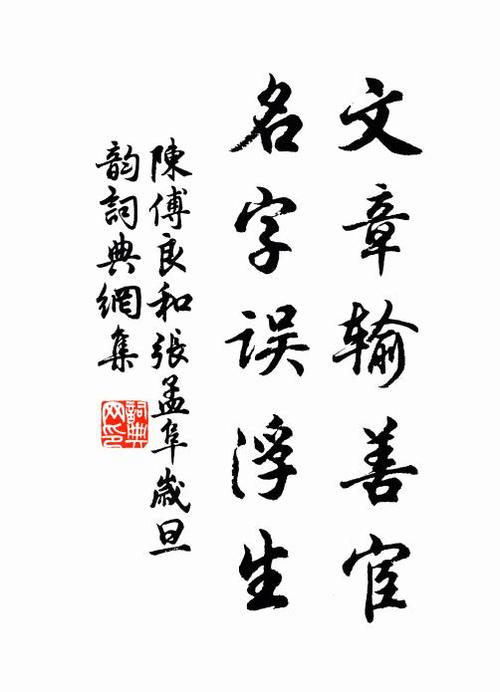 文章输善宦
名字误浮生
陳傅良和張孟阜歲旦
韵詞典網集
詞典網印